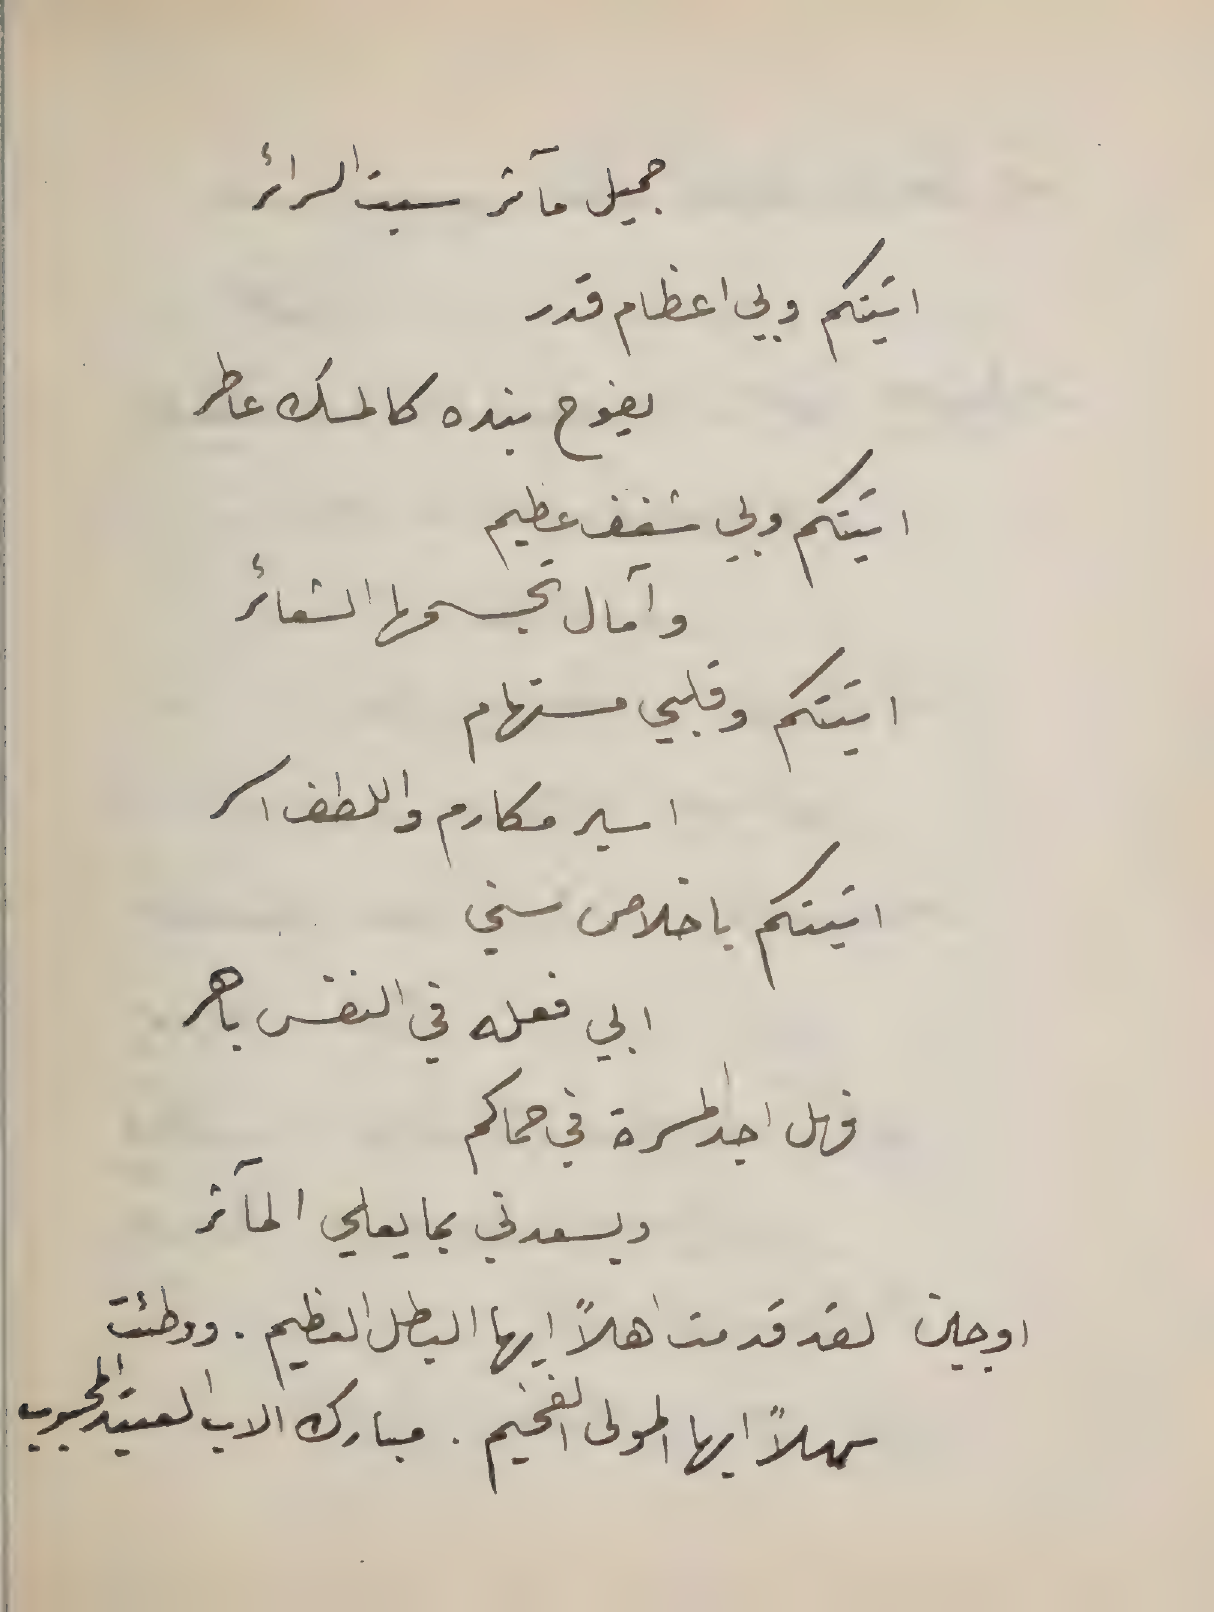 جميل مآثر سبت السرائر
اتيتكم وبي اعظام قدر
يفوح بنده كالمسك عاطر
اتيتكم وبي شغف عظيم
وآمال تجسمها الشعائر
اتيتكم وقلبي مستهام
اسير مكارم واللطف اسر
اتيتكم باخلاص سني
ابي فعله في النفس باهر
فهل اجد المسرة في حماكم
ويسعدني بما يعلي المآثر
اوجين لقد قدمت اهلاً ايها البطل العظيم . ووطئت
سهلاً ايها المولى الفخيم . مبارك الاب العتيد المحبوب